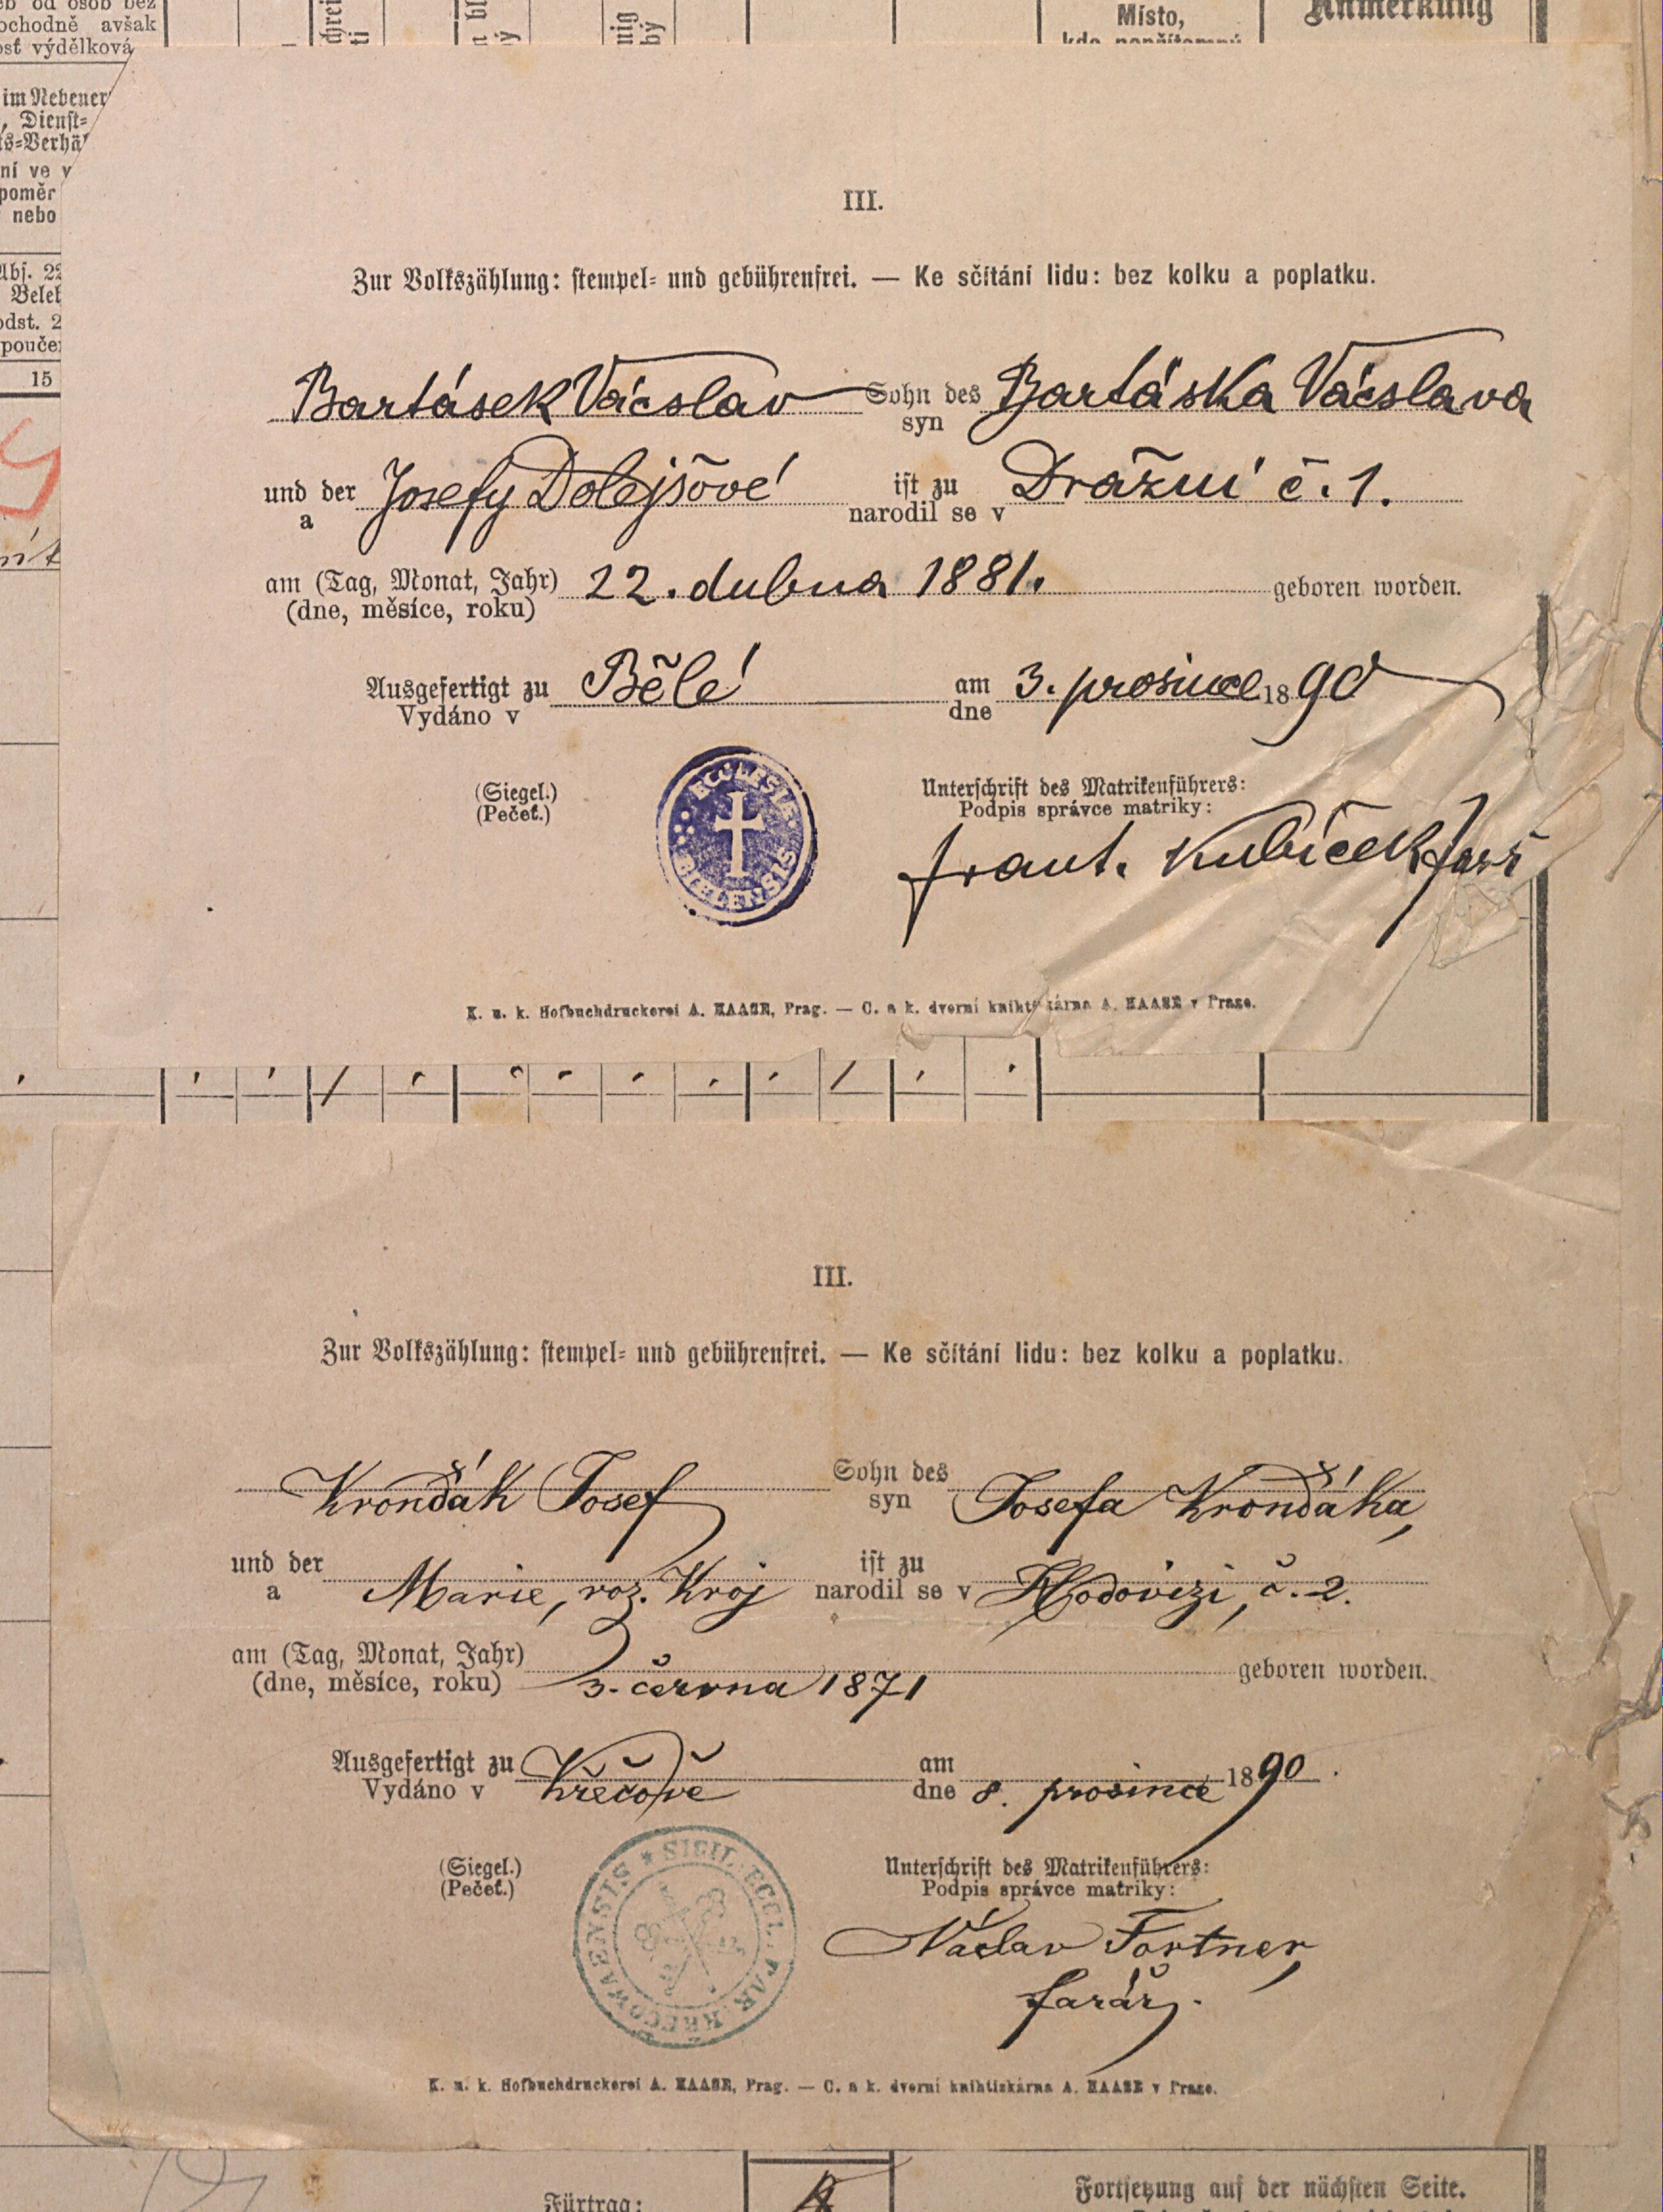 eb od osob bez
ochodně avšak
ost výdělková
Místo,
Anmerkung
im Nebener
, Dienst=
ts=Verhä
ní ve v
poměr
nebo
Abs. 22
Beleh
odst. 2
poučen
15
III.
Zur Volkszählung: stempel= und gebührenfrei. — Ke sčítání lidu: bez kolku a poplatku.
Bartásek Vácslav Sohn des Bartáska Vácslava
syn
und der Josefy Dolejšové ist zu Drážní č. 1.
a narodil se v
am (Tag, Monat, Jahr) 22. dubna 1881. geboren worden.
(dne, měsíce, roku)
Ausgefertigt zu Bělé am 3. prosince 1890
Vydáno v dne
(Siegel.)
(Pečeť.)
ECCLESIE BIELENSIS
Unterschrift des Matrikenführers:
Podpis správce matriky:
Frant. Kubíček farř
K. u. k. Hofbuchdruckerei A. HAASE, Prag. — C. a k. dvorní knihtiskárna A. HAASE v Praze.
III.
Zur Volkszählung: stempel= und gebührenfrei. — Ke sčítání lidu: bez kolku a poplatku.
Kronďák Josef Sohn des Josefa Kronďáka,
syn
und der Marie, roz. Kroj ist zu Hodovízi, č. 2.
a narodil se v
am (Tag, Monat, Jahr) geboren worden.
(dne, měsíce, roku) 3. června 1871
Ausgefertigt zu Křečově am 1890.
Vydáno v dne 8. prosince
(Siegel.)
(Pečeť.)
SIGIL. ECCL. PAR. KŘECOWAENSIS
Unterschrift des Matrikenführers:
Podpis správce matriky:
Václav Fortner,
farář.
K. u. k. Hofbuchdruckerei A. HAASE, Prag. — C. a k. dvorní knihtiskárna A. HAASE v Praze.
Fortsetzung auf der nächsten Seite.
Fürtrag: